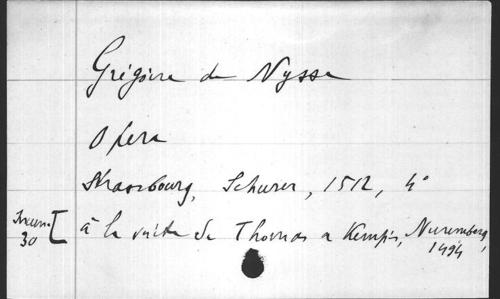 Grégoire de Nysse
Opera
Strasbourg, Schurer, 1512, 4°
Incun. 30 [ à la suite de Thomas a Kempis, Nuremberg, 1494